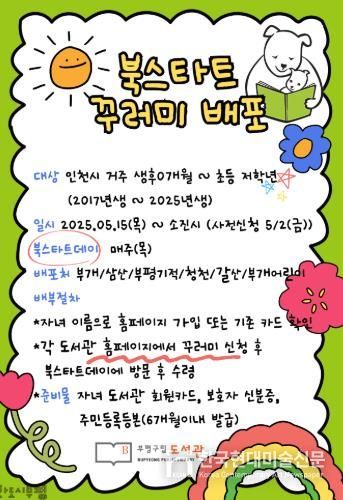 북스타트
꾸러미 배포
대상 인천시 거주 생후0개월 ~ 초등 저학년
(2017년생 ~ 2025년생)
일시 2025.05.15(목) ~ 소진시 (사전신청 5/2(금))
북스타트데이 매주(목)
배포처 부개/삼산/부평기적/청천/갈산/부개어린이
배부절차
*자녀 이름으로 홈페이지 가입 또는 기존 카드 확인
*각 도서관 홈페이지에서 꾸러미 신청 후
북스타트데이에 방문 후 수령
*준비물 자녀 도서관 회원카드, 보호자 신분증,
주민등록등본(6개월이내 발급)
B 부평구립 도서관
한국현대미술신문